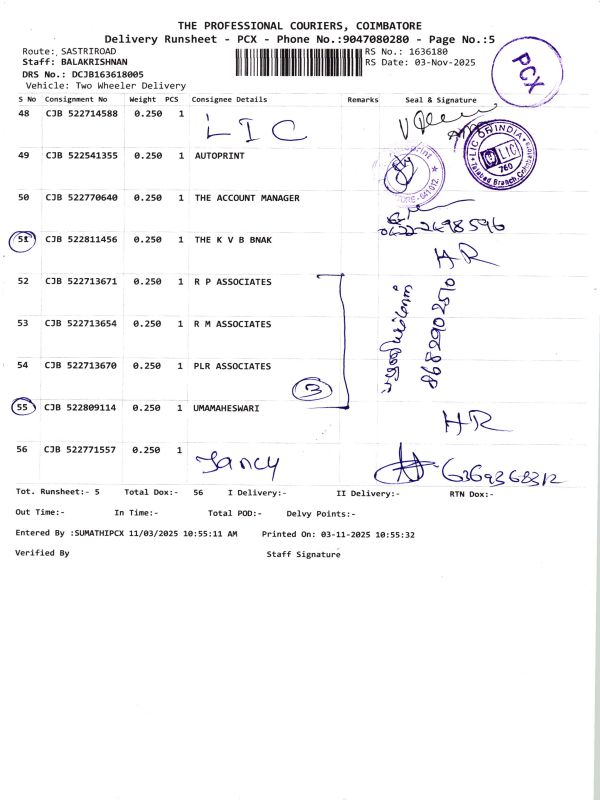 THE PROFESSIONAL COURIERS, COIMBATORE
Delivery Runsheet - PCX - Phone No.:9047080280 - Page No.:5
Route: SASTRIROAD RS No.: 1636180
Staff: BALAKRISHNAN RS Date: 03-Nov-2025
DRS No.: DCJB163618005
Vehicle: Two Wheeler Delivery
PCX
S No Consignment No Weight PCS Consignee Details Remarks Seal & Signature
48 CJB 522714588 0.250 1 LIC
LIC OF INDIA
LIC
760
49 CJB 522541355 0.250 1 AUTOPRINT
50 CJB 522770640 0.250 1 THE ACCOUNT MANAGER
0422-2498596
51 CJB 522811456 0.250 1 THE K V B BNAK HR
52 CJB 522713671 0.250 1 R P ASSOCIATES
53 CJB 522713654 0.250 1 R M ASSOCIATES
8682902510
54 CJB 522713670 0.250 1 PLR ASSOCIATES
3
55 CJB 522809114 0.250 1 UMAMAHESWARI HR
56 CJB 522771557 0.250 1 Jancy 6369368312
Tot. Runsheet:- 5 Total Dox:- 56 I Delivery:- II Delivery:- RTN Dox:-
Out Time:- In Time:- Total POD:- Delvy Points:-
Entered By :SUMATHIPCX 11/03/2025 10:55:11 AM Printed On: 03-11-2025 10:55:32
Verified By Staff Signature